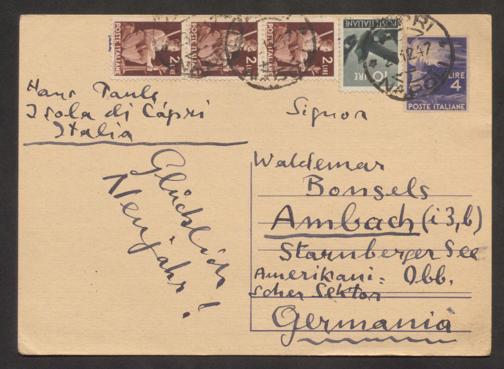 POSTE ITALIANE 2 LIRE
POSTE ITALIANE 2 LIRE
POSTE ITALIANE 2 LIRE
POSTE ITALIANE 10 LIRE
CAPRI
12.47
NAPOLI
LIRE
4
POSTE ITALIANE
Hans Paule
Isola di Cápri
Italia
Signor
Glücklich
Neujahr!
Waldemar
Bonsels
Ambach (i3,b)
Starnberger See
Amerikani- Obb.
scher Sektor
Germania